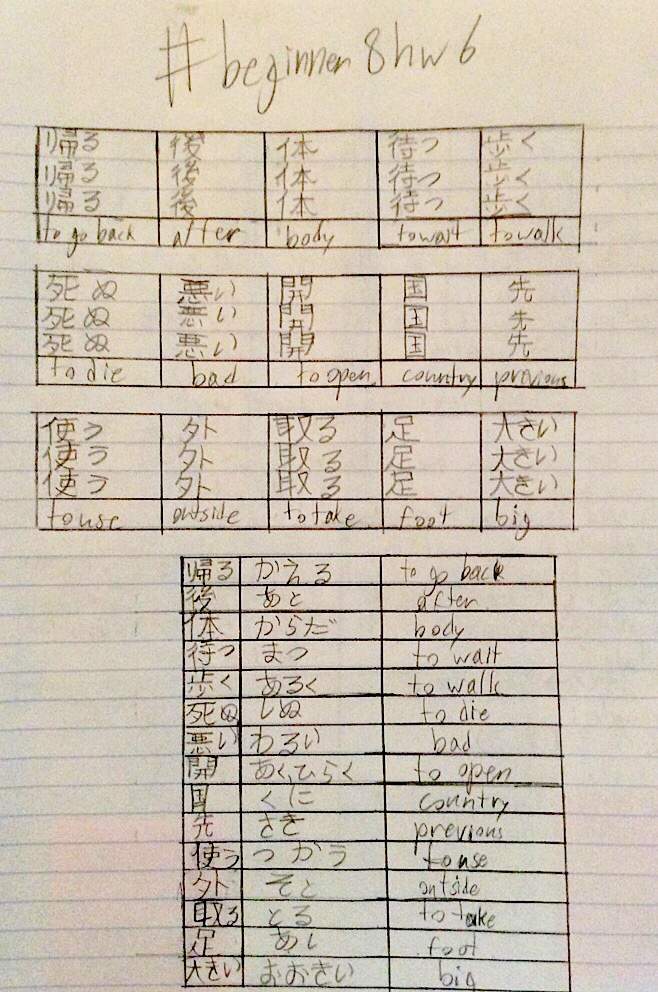 #beginner8hw6
帰る 後 体 待つ 歩く
帰る 後 体 待つ 歩く
帰る 後 体 待つ 歩く
to go back after body to wait to walk
死ぬ 悪い 開 国 先
死ぬ 悪い 開 国 先
死ぬ 悪い 開 国 先
to die bad to open country previous
使う 外 取る 足 大きい
使う 外 取る 足 大きい
使う 外 取る 足 大きい
to use outside to take foot big
帰る かえる to go back
後 あと after
体 からだ body
待つ まつ to wait
歩く あるく to walk
死ぬ しぬ to die
悪い わるい bad
開 あく,ひらく to open
国 くに country
先 さき previous
使う つかう to use
外 そと outside
取る とる to take
足 あし foot
大きい おおきい big